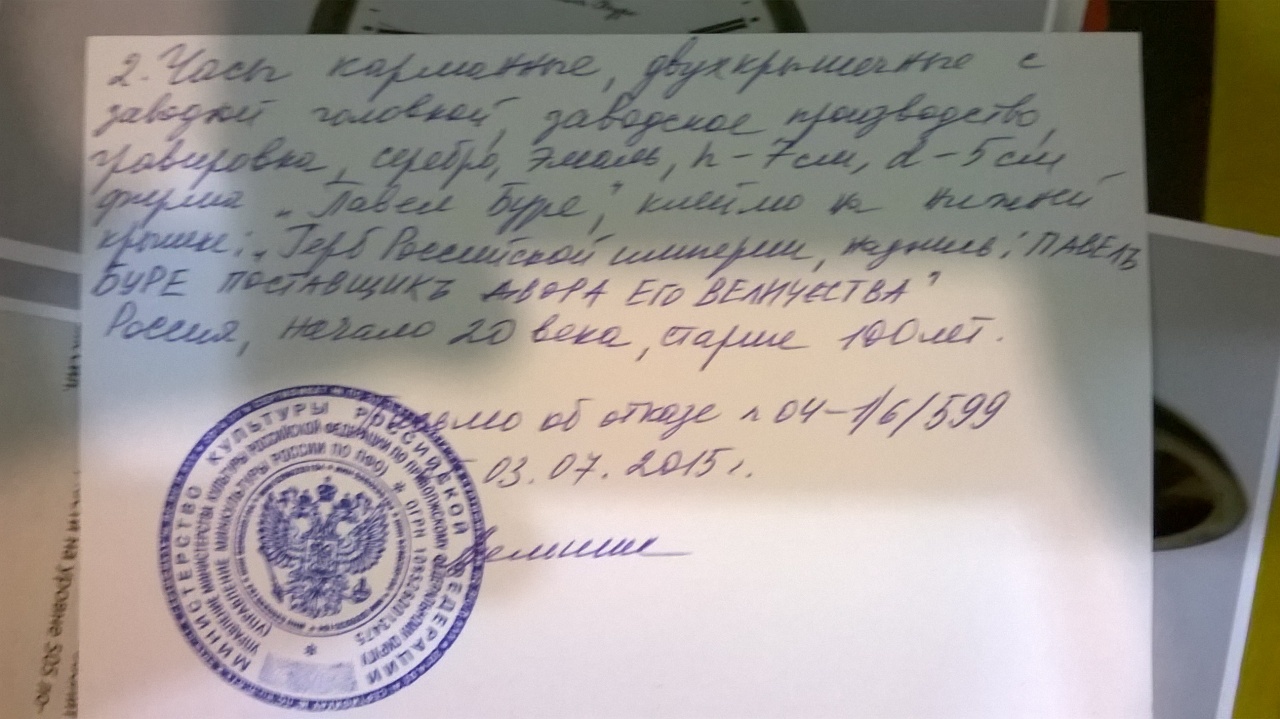 2. Часы карманные, двухкрышечные с
заводной головкой, заводское производство,
гравировка, серебро, эмаль, h - 7 см, d - 5 см
фирма „Павел Буре", клеймо на нижней
крышке: „Герб Российской империи, надпись: ПАВЕЛЪ
БУРЕ ПОСТАВЩИКЪ ДВОРА ЕГО ВЕЛИЧЕСТВА"
Россия, начало 20 века, старше 100 лет.
Письмо об отказе 04-1/6/599
03.07.2015г.
МИНИСТЕРСТВО КУЛЬТУРЫ РОССИЙСКОЙ ФЕДЕРАЦИИ
УПРАВЛЕНИЕ МИНИСТЕРСТВА КУЛЬТУРЫ РОССИЙСКОЙ ФЕДЕРАЦИИ ПО ПРИВОЛЖСКОМУ ФЕДЕРАЛЬНОМУ ОКРУГУ
(УПРАВЛЕНИЕ МИНКУЛЬТУРЫ РОССИИ ПО ПФО) * ОГРН
на уровне 505 ло-